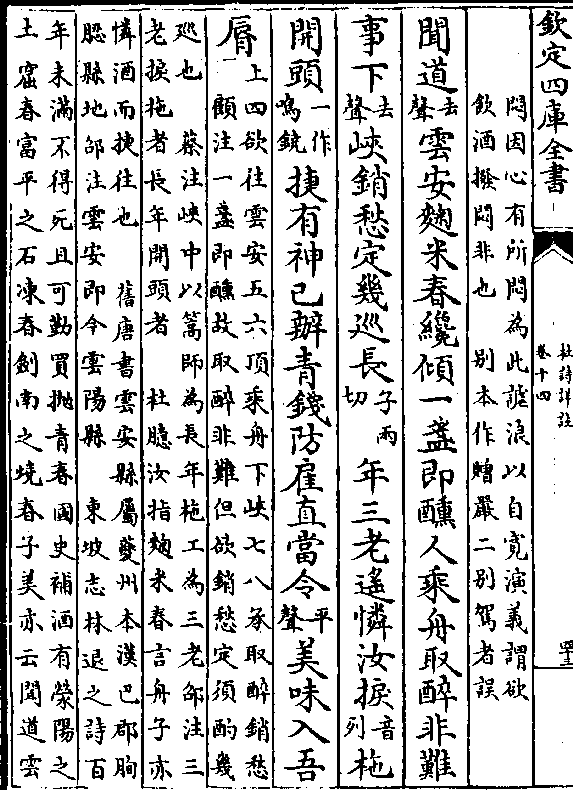 欽定四庫全書
杜詩詳註
卷十四
悶因心有所悶為此謔浪以自寬演義謂欲
飲酒撥悶非也 别本作贈嚴二别駕者誤
聞道去聲雲安麹米春纔傾一盞即醺人乘舟取醉非難
事下去聲峽銷愁定幾巡長子兩切年三老遙憐汝捩音列柁
開頭一作鳴鐃捷有神已辦青錢防雇直當令平聲美味入吾
脣
上四欲往雲安五六頂乘舟下峽七八承取醉銷愁
顧注一盞即醺故取醉非難但欲銷愁定須酌幾
巡也 蔡注峽中以篙師為長年柁工為三老邵注三
老捩柁者長年開頭者 杜臆汝指麹米春言舟子亦
憐酒而捷往也 舊唐書雲安縣屬夔州本漢巴郡朐
䏰縣地邵注雲安即今雲陽縣 東坡志林退之詩百
年未滿不得死且可勤買抛青春國史補酒有滎陽之
土窟春富平之石凍春劍南之燒春子美亦云聞道雲